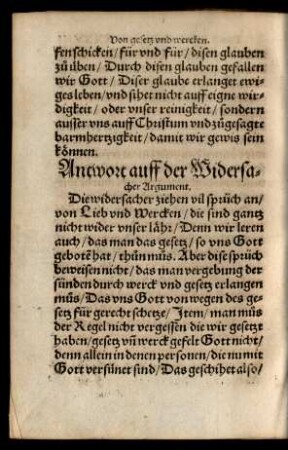 Von gesetz vnd wercken.
fenschicken/für vnd für/disen glauben
zů üben/Durch disen glauben gefallen
wir Gott/Diser glaube erlanget ewi-
ges leben/vnd sihet nicht auff eigne wir-
digkeit/oder vnser reinigkeit/sondern
ausser vns auff Christum vnd zůgesagte
barmhertzigkeit/damit wir gewis sein
können.
Antwort auff der Widersa-
cher Argument.
Die widersacher ziehen vil sprüch an/
von Lieb vnd Wercken/die sind gantz
nicht wider vnser lähr/Denn wir leren
auch/das man das gesetz/so vns Gott
gebotē hat/thůn můs. Aber dise sprüch
beweisen nicht/das man vergebung der
sünden durch werck vnd gesetz erlangen
můs/Das vns Gott von wegen des ge-
setz für gerecht schetze/Item/man můs
der Regel nicht vergessen die wir gesetzt
haben/gesetz vn̄ werck gefelt Gott nicht/
denn allein in denen personen/die nu mit
Gott versünet sind/Das geschihet also/